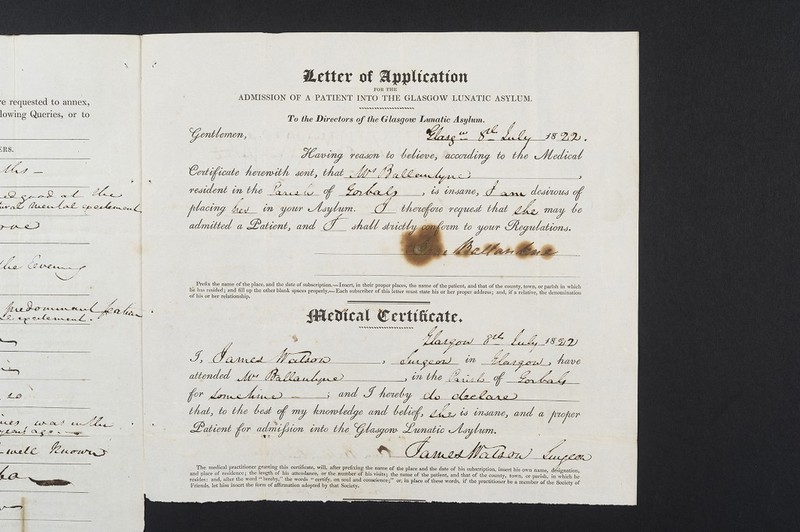 re requested to annex,
lowing Queries, or to
ERS.
good at the
mental excitement
the Evening
predominant
excitement.
years ago.
well Known
Letter of Application
FOR THE
ADMISSION OF A PATIENT INTO THE GLASGOW LUNATIC ASYLUM.
To the Directors of the Glasgow Lunatic Asylum.
Gentlemen, Glasgw 8th July 1822.
Having reason to believe, according to the Medical
Certificate herewith sent, that Mrs Ballantyne,
resident in the Parish of Gorbals, is insane, I am desirous of
placing her in your Asylum. I therefore request that she may be
admitted a Patient, and I shall strictly conform to your Regulations.
Ballantine
Prefix the name of the place, and the date of subscription.—Insert, in their proper places, the name of the patient, and that of the county, town, or parish in which
he has resided; and fill up the other blank spaces properly.—Each subscriber of this letter must state his or her proper address; and, if a relative, the denomination
of his or her relationship.
Medical Certificate.
Glasgow 8th July 1822
I, James Watson, Surgeon in Glasgow, have
attended Mrs Ballantyne, in the Parish of Gorbals
for Sometime; and I hereby do declare
that, to the best of my knowledge and belief, she is insane, and a proper
Patient for admission into the Glasgow Lunatic Asylum.
James Watson Surgeon
The medical practitioner granting this certificate, will, after prefixing the name of the place and the date of his subscription, insert his own name, designation,
and place of residence; the length of his attendance, or the number of his visits; the name of the patient, and that of the county, town, or parish, in which he
resides: and, after the word "hereby," the words "certify, on soul and conscience;" or, in place of these words, if the practitioner be a member of the Society of
Friends, let him insert the form of affirmation adopted by that Society.